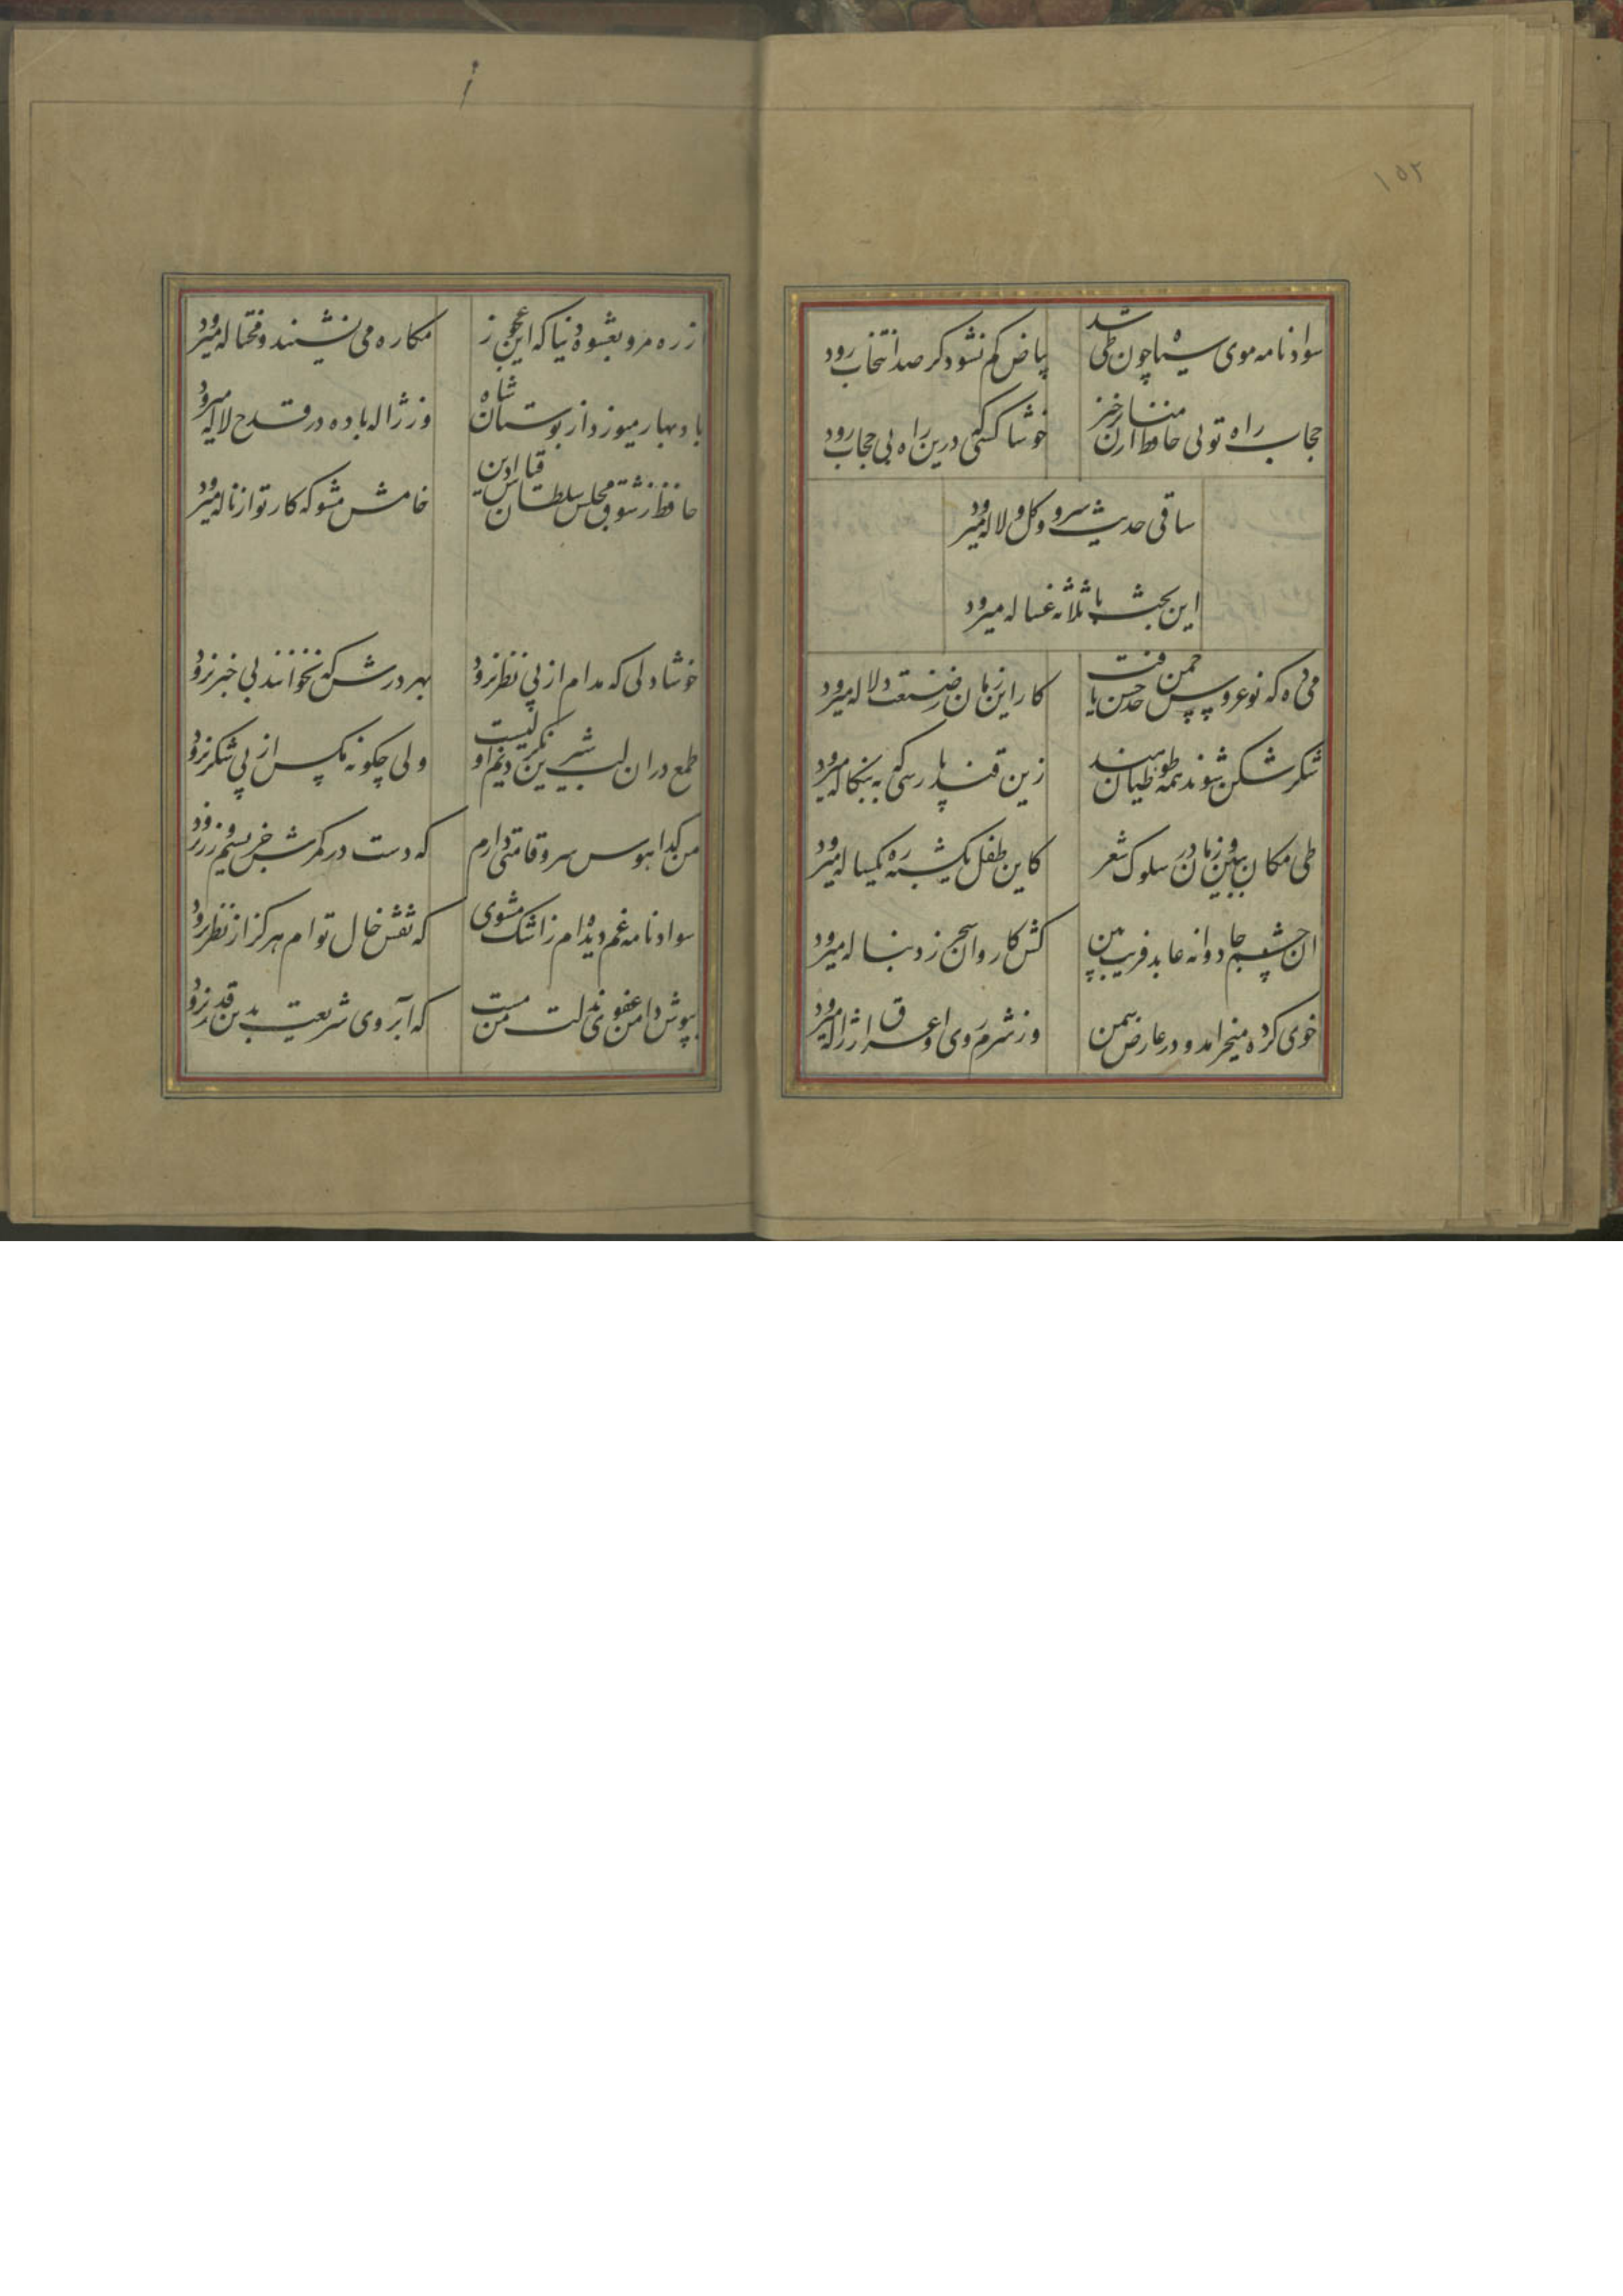 ۱۵۲
سواد نامه موی سیاه چون طی شد
بیاض کم نشود کر صد انتخاب رود
حجاب راه تویی حافظ از میان خیز
خوشا کسی که درین راه بی حجاب رود
ساقی حدیث سرو و کل و لاله میرود
این بحث با ثلاثه غساله میرود
می ده که نوعروس چمن حد حسن یافت
کار این زمان ز صنعت دلاله میرود
شکر شکن شوند همه طوطیان هند
زین قند پارسی که به بنکاله میرود
طی مکان ببین و زمان در سلوک شعر
کاین طفل یکشبه ره یکساله میرود
ان چشم جادوانه عابد فریب بین
کش کاروان سحر ز دنباله میرود
خوی کرده میخرامد و در عارض سمن
وز شرم روی او عرق از ژاله میرود
از ره مرو بعشوه دنیا که این عجوز
مکاره می نشیند و محتاله میرود
باد بهار میوزد از بوستان شاه
وز ژاله باده در قدح لاله میرود
حافظ ز شوق مجلس سلطان غیاث دین
خامش مشو که کار تو از ناله میرود
خوشا دلی که مدام از پی نظر نرود
بهر درش که نخوانند بی خبر نرود
طمع دران لب شیرین نکردنم اولیست
ولی چکونه مکس از پی شکر نرود
من کدا هوس سرو قامتی دارم
که دست در کمرش جز بسیم و زر نرود
سواد نامه غم دیده ام ز اشک مشوی
که نقش خال تو ام هرکز از نظر نرود
بپوش دامن عفوی بذلت من مست
که آبروی شریعت بدین قدر نرود